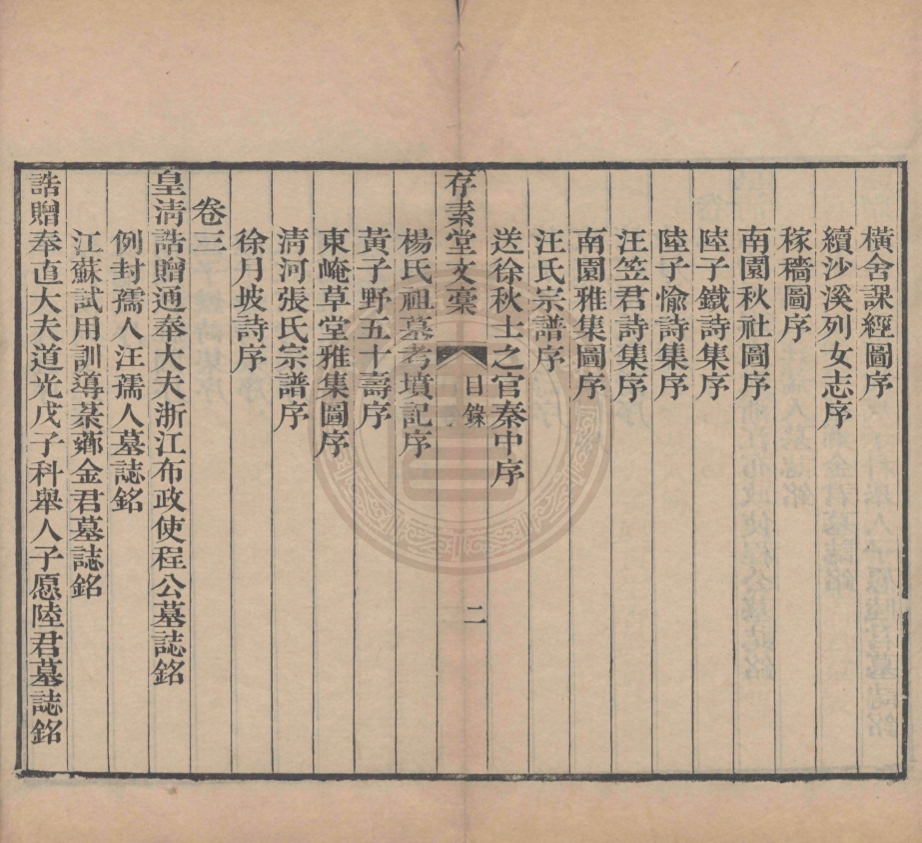 橫舍課經圖序
續沙溪列女志序
稼穡圖序
南園秋社圖序
陸子鐵詩集序
陸子愉詩集序
汪笠君詩集序
南園雅集圖序
汪氏宗譜序
送徐秋士之官秦中序
存素堂文稾 目錄 二
楊氏祖墓考墳記序
黃子野五十壽序
東崦草堂雅集圖序
淸河張氏宗譜序
徐月坡詩序
卷三
皇淸誥贈通奉大夫浙江布政使程公墓誌銘
例封孺人汪孺人墓誌銘
江蘇試用訓導菉薌金君墓誌銘
誥贈奉直大夫道光戊子科舉人子愿陸君墓誌銘